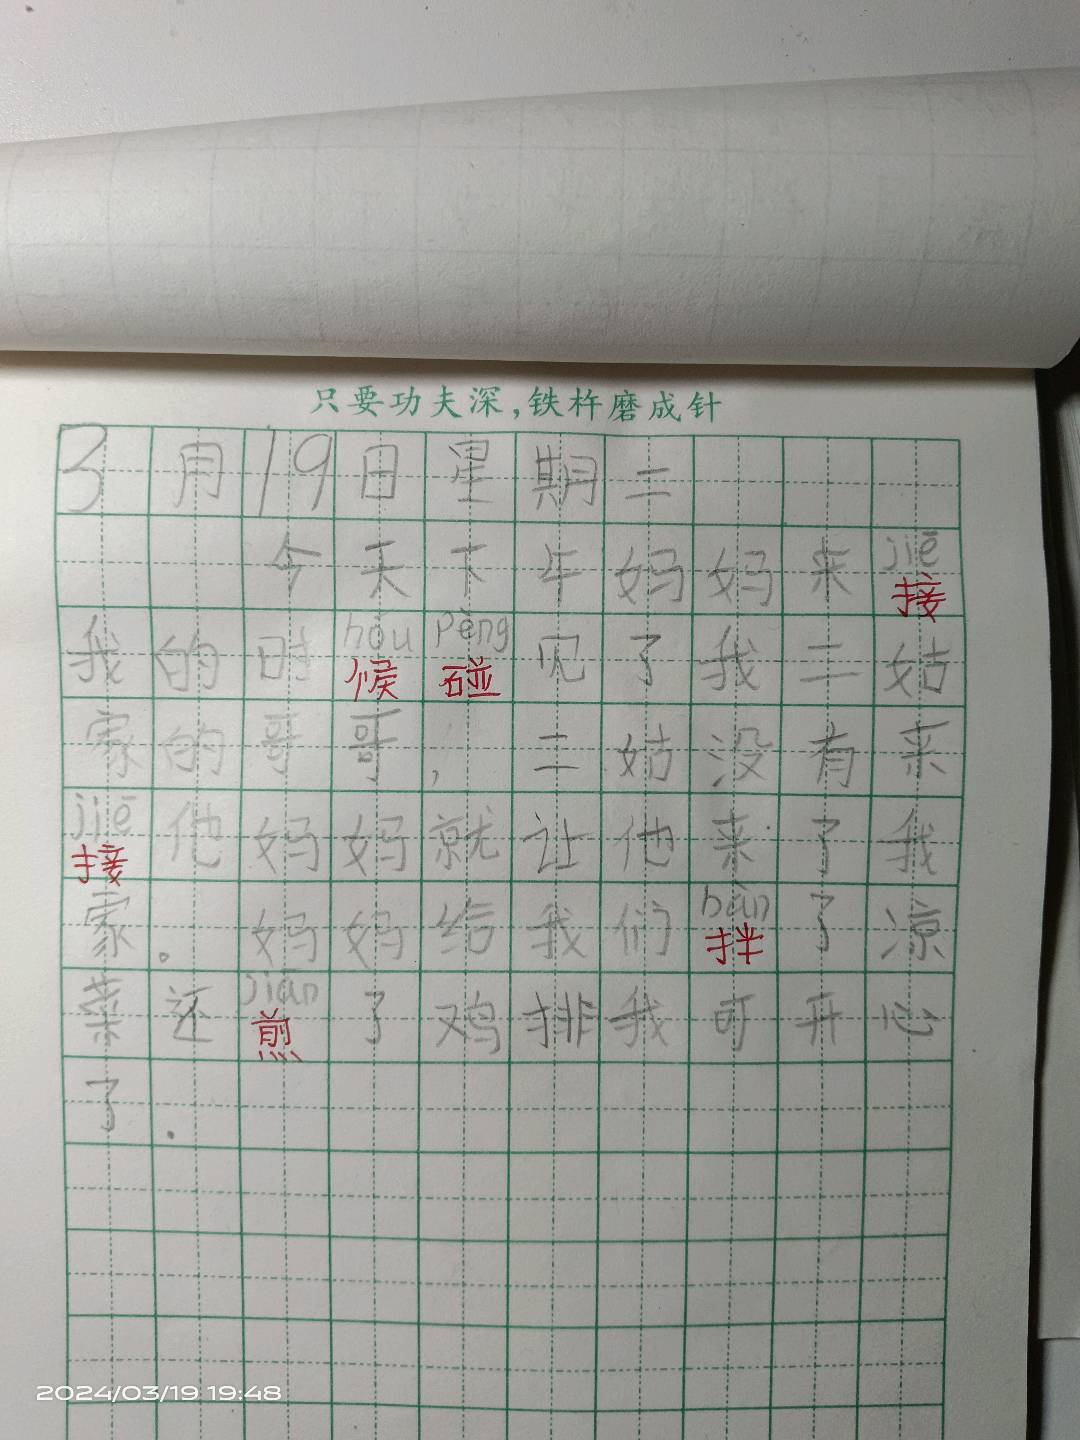 只要功夫深,铁杵磨成针
3月19日星期二
今天下午妈妈来jiē接
我的时hóu候pèng碰见了我二姑
家的哥哥,二姑没有来
jiē接他妈妈就让他来了我
家。妈妈给我们bàn拌了凉
菜还jiān煎了鸡排我可开心
了.
2024/03/19 19:48